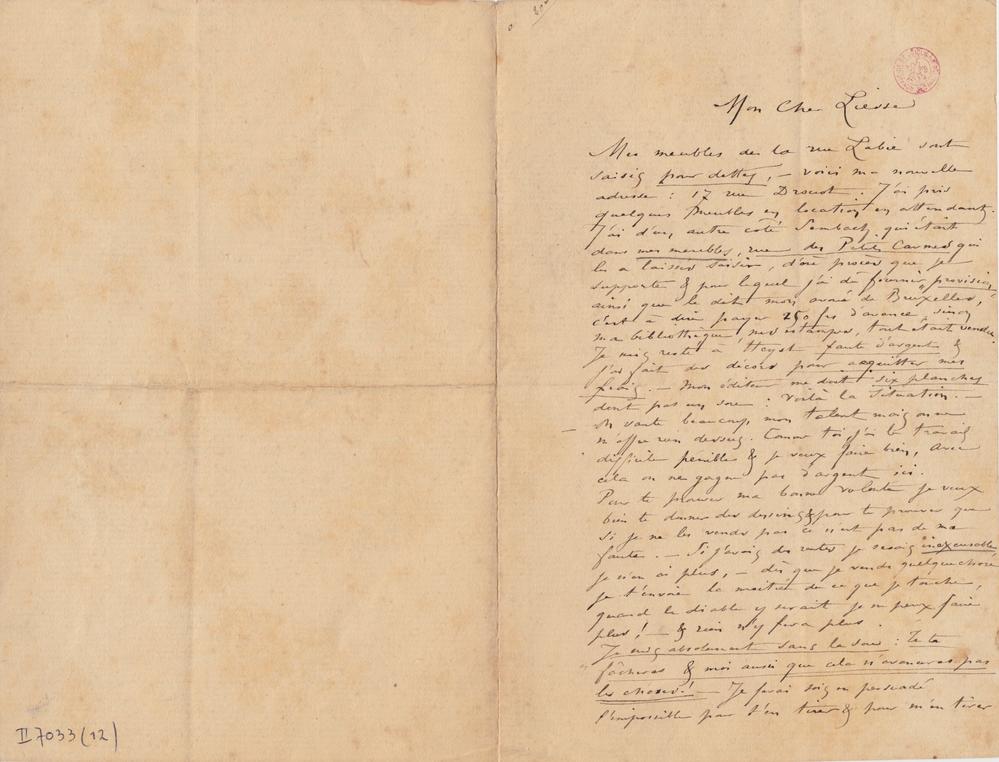 Mon Cher Liesse
Mes meubles de la rue Labie sont
saisis pour dettes, – voici ma nouvelle
adresse : 17 rue Drouot. J'ai pris
quelques meubles en location en attendant.
J'ai d'un autre coté Sembach qui était
dans mes meubles, rue des Petits Carmes qui
les a laissés saisir, d'où procès que je
supporte & pour lequel j'ai dû fournir provision
ainsi que le dit mon avoué de Bruxelles,
c'est à dire payer 250 frs d'avance, sinon
ma bibliothèque, mes estampes, tout était vendu.
Je suis resté à Heyst faute d'argent &
j'ai fait des décors pour acquitter mes
frais. – Mon éditeur me doit six planches
dont pas un sou : Voilà la situation. –
On vante beaucoup mon talent mais on ne
n'offre rien dessus. Comme toi j'ai le travail
difficile pénible & je veux faire bien, avec
cela on ne gagne pas d'argent ici.
Pour te prouver ma bonne volonté je veux
bien te donner des dessins & pour te prouver que
si je ne les vends pas ce n'est pas de ma
faute. – Si j'avais des rentes je serais inexcusable
je n'en ai plus, – dès que je vends quelque chose
je t'envoie la moitié de ce que je touche,
quand le diable y serait je ne peux faire
plus! – & rien n'y fera plus.
Je suis absolument sans le sou : Tu te
fâcheras & moi aussi que cela n'avancera pas
les choses! – Je ferai sois en persuadé
l'impossible pour t'en tirer & pour m'en tirer
II 7033 (12)